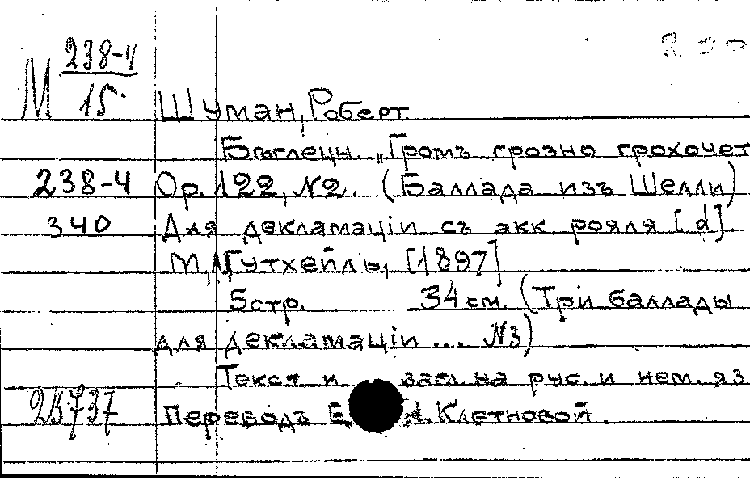 М 238-4
15
Шуман, Роберт.
Бѣглецы. „Громъ грозно грохочет
238-4 Op. 122, №2. (Баллада изъ Шелли)
340 Для декламаціи съ акк рояля [d].
М., Гутхейль, [1897]
5стр. 34см. (Три баллады
для декламаціи ... №3)
Текст и загл. на рус. и нем. яз
Переводъ Е. А. Клетновой.